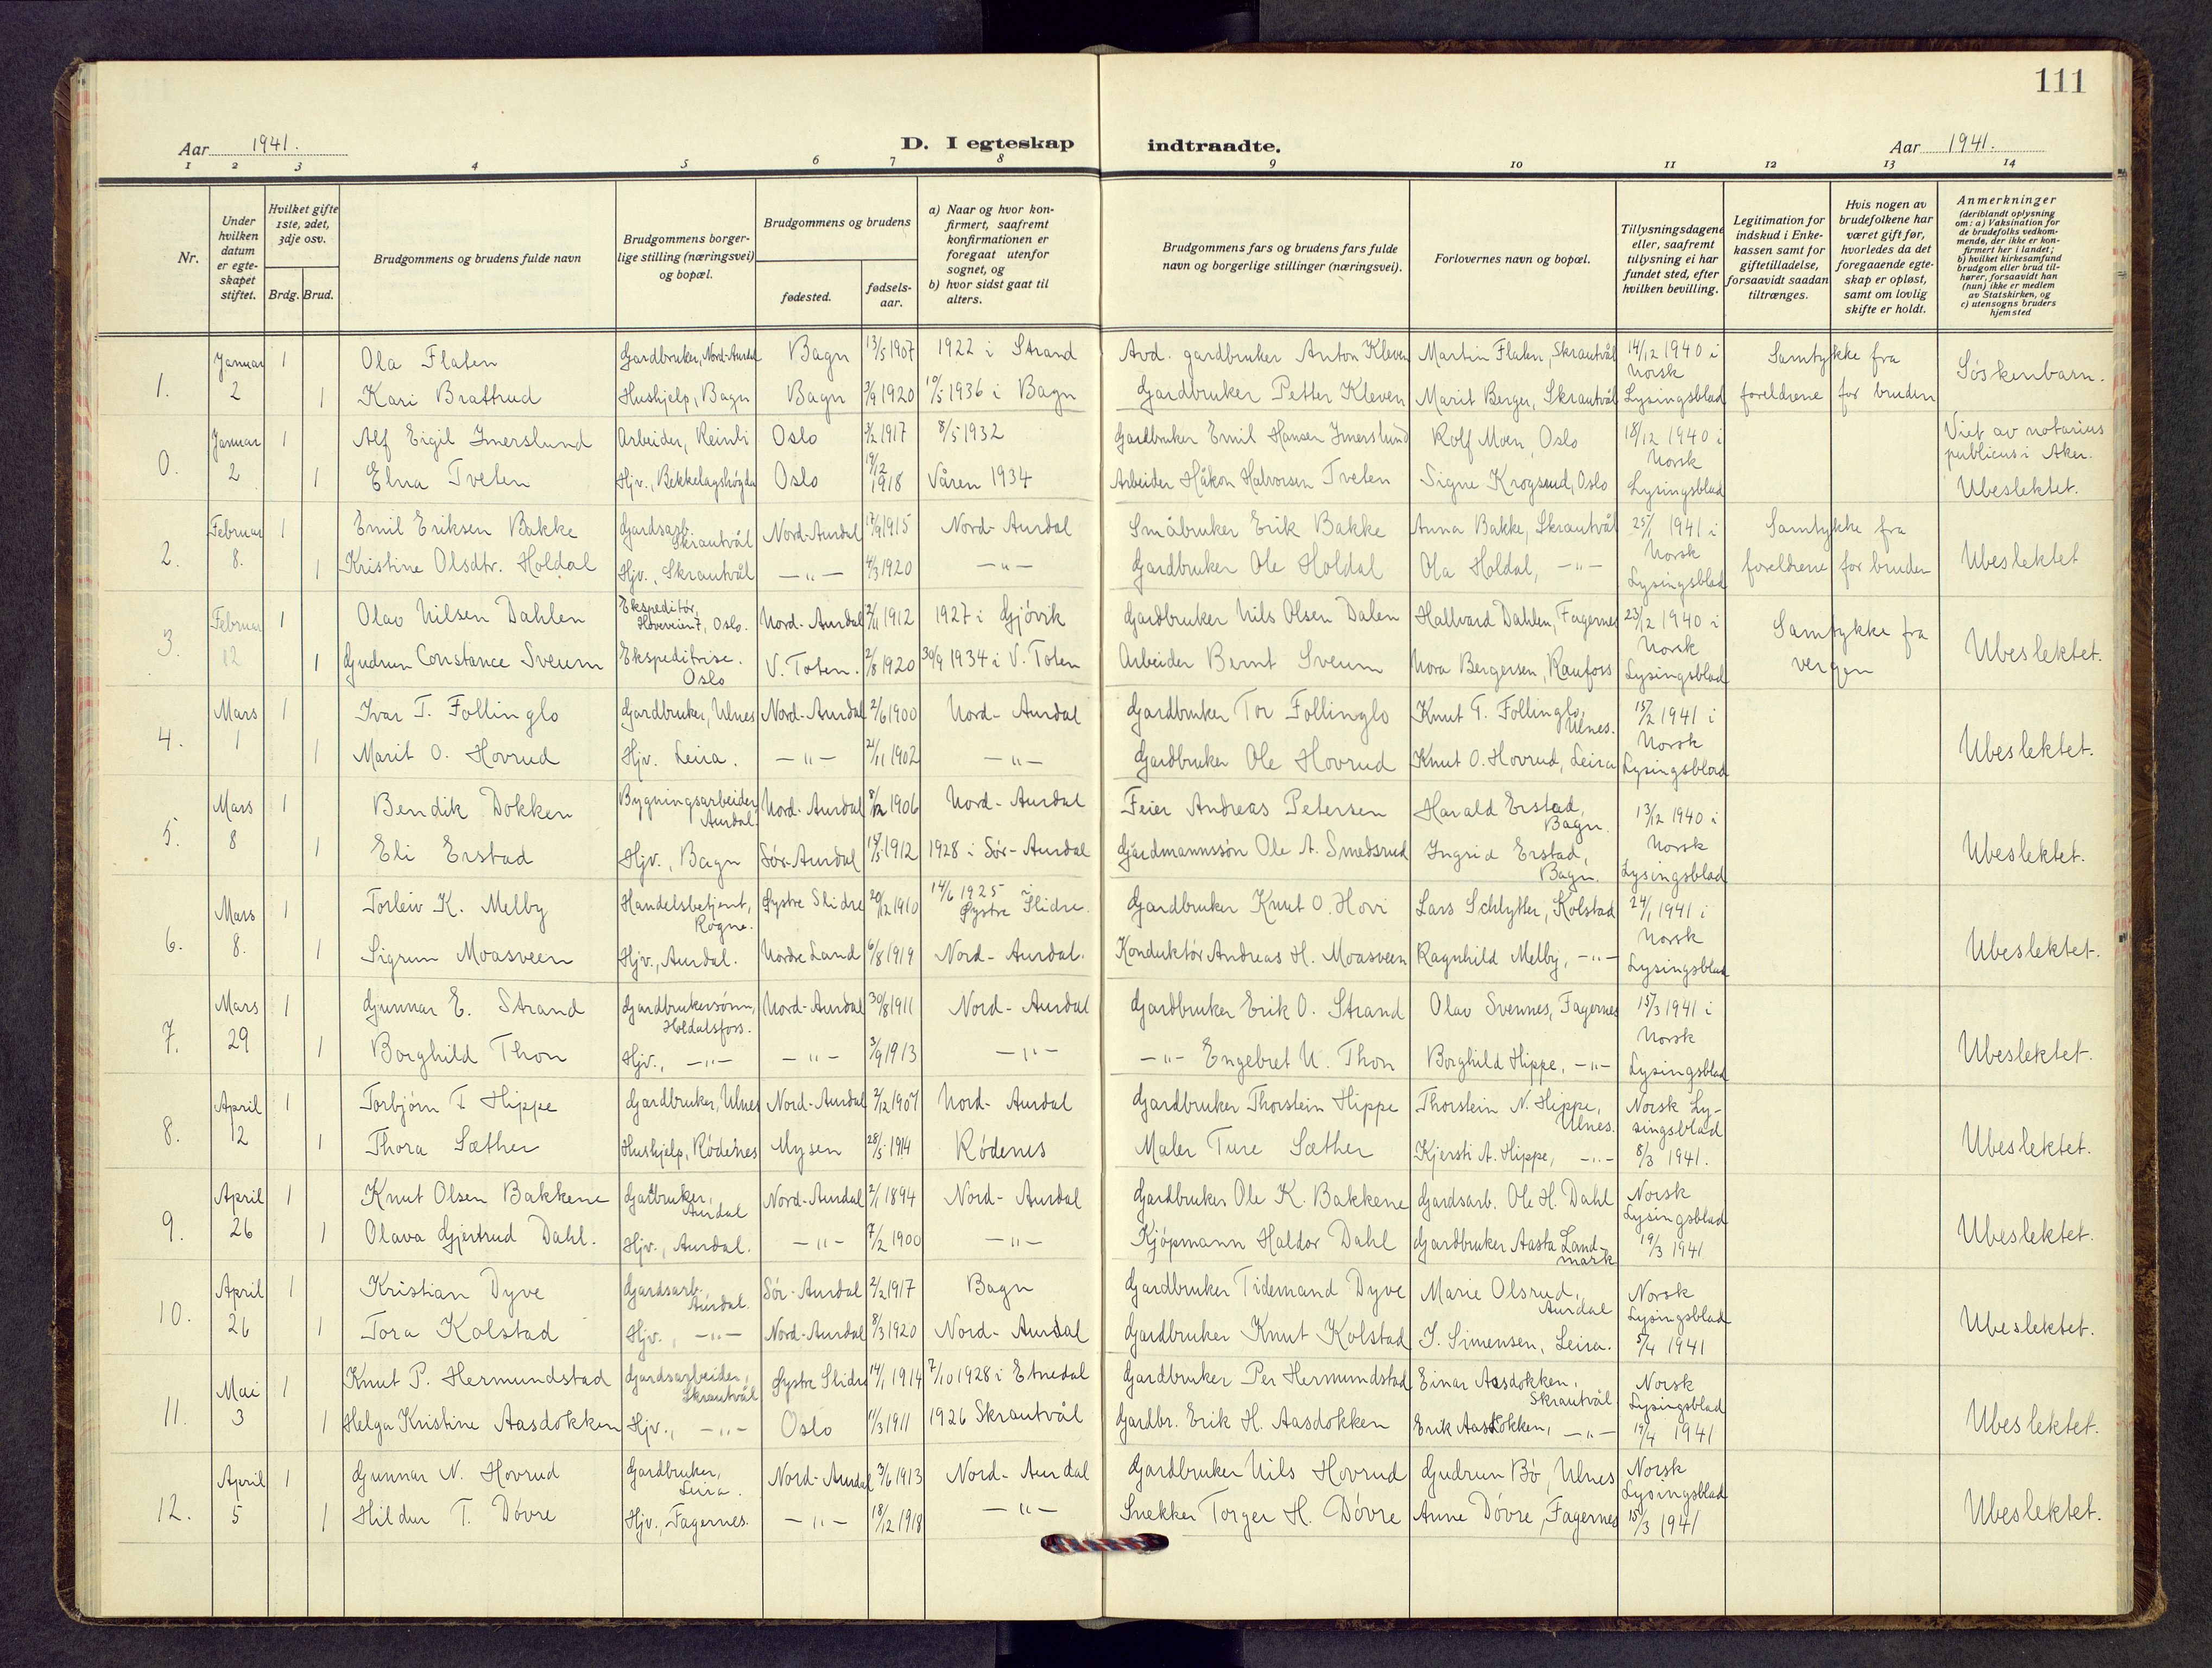 111
Aar 1941.
D. I egteskap
indtraadte.
Aar 1941.
1 2 3 4 5 6 7 8 9 10 11 12 13 14
Nr.
Under hvilken datum er egte-skapet stiftet.
Hvilket gifte 1ste, 2det, 3dje osv.
Brdg. Brud.
Brudgommens og brudens fulde navn
Brudgommens borger-lige stilling (næringsvei) og bopæl.
Brudgommens og brudens
fødested.
fødsels-aar.
a) Naar og hvor kon-firmert, saafremt konfirmationen er foregaat utenfor sognet, og
b) hvor sidst gaat til alters.
Brudgommens fars og brudens fars fulde navn og borgerlige stillinger (næringsvei).
Forlovernes navn og bopæl.
Tillysningsdagene eller, saafremt tillysning ei har fundet sted, efter hvilken bevilling.
Legitimation for indskud i Enke-kassen samt for giftetilladelse, forsaavidt saadan tiltrænges.
Hvis nogen av brudefolkene har været gift før, hvorledes da det foregaaende egte-skap er opløst, samt om lovlig skifte er holdt.
Anmerkninger (deriblandt oplysning om: a) Vaksination for de brudefolks vedkom-mende, der ikke er kon-firmert her i landet; b) hvilket kirkesamfund brudgom eller brud til-hører, forsaavidt han (hun) ikke er medlem av Statskirken, og c) utensogns bruders hjemsted
1. Januar 2 1 Ola Flaten Gardbruker, Nord-Aurdal Bagn 13/5 1907 1922 i Strand Avd. gardbruker Anton Kleven Martin Flaten, Skrautvål 14/12 1940 i Norsk Lysingsblad Samtykke fra foreldrene for bruden Søskenbarn.
1 Kari Brattrud Hushjelp, Bagn Bagn 3/9 1920 10/5 1936 i Bagn Gardbruker Petter Kleven Marit Berger, Skrautvål
0. Januar 2 1 Alf Eigil Imerslund Arbeider, Reinli Oslo 3/2 1917 8/5 1932 Gardbruker Emil Hansen Imerslund Rolf Moen, Oslo 18/12 1940 i Norsk Lysingsblad Viet av notarius publicus i Aker. Ubeslektet.
1 Elna Tveten Hjv., Bekkelagshøgda Oslo 19/12 1918 Våren 1934 Arbeider Håkon Halvorsen Tveten Signe Krogsrud, Oslo
2. Februar 8. 1 Emil Eriksen Bakke Gardsarb. Skrautvål Nord-Aurdal 17/9 1915 Nord-Aurdal Småbruker Erik Bakke Anna Bakke, Skrautvål 25/1 1941 i Norsk Lysingsblad Samtykke fra foreldrene for bruden Ubeslektet
1 Kristine Olsdtr. Holdal Hjv., Skrautvål —"— 4/3 1920 —"— Gardbruker Ole Holdal Ola Holdal, —"—
3. Februar 12 1 Olav Nilsen Dahlen Ekspeditør, Hoveveien 7, Oslo. Nord-Aurdal 2/11 1912 1927 i Gjøvik Gardbruker Nils Olsen Dalen Hallvard Dahlen, Fagernes 23/12 1940 i Norsk Lysingsblad Samtykke fra vergen Ubeslektet.
1 Gudrun Constance Sveum Ekspeditrise. Oslo V. Toten. 2/8 1920 30/9 1934 i V. Toten Arbeider Bernt Sveum Nora Bergersen, Raufoss
4. Mars 1 1 Ivar T. Follinglo Gardbruker, Ulnes Nord-Aurdal 2/6 1900 Nord-Aurdal Gardbruker Tor Follinglo Knut T. Follinglo, Ulnes. 15/2 1941 i Norsk Lysingsblad Ubeslektet.
1 Marit O. Hovrud Hjv. Leira. —"— 21/11 1902 —"— Gardbruker Ole Hovrud Knut O. Hovrud, Leira
5. Mars 8 1 Bendik Dokken Bygningsarbeider Aurdal. Nord-Aurdal 8/12 1906 Nord-Aurdal Feier Andreas Petersen Harald Erstad, Bagn. 13/12 1940 i Norsk Lysingsblad Ubeslektet.
1 Eli Erstad Hjv., Bagn Sør-Aurdal 1912 1928 i Sør-Aurdal Gårdmannssøn Ole A. Smedsrud Ingrid Erstad, Bagn.
6. Mars 8. 1 Torleiv K. Melby Handelsbetjent, Rogne. Øystre Slidre 20/12 1910 14/6 1925 i Øystre Slidre. Gardbruker Knut O. Hovi Lars Schlytter, Kolstad 24/1 1941 i Norsk Lysingsblad Ubeslektet.
1 Sigrun Moasveen Hjv., Aurdal. Nordre Land 6/8 1919 Nord-Aurdal. Konduktør Andreas H. Moasveen Ragnhild Melby, —"—
7. Mars 29 1 Gunnar E. Strand Gardbrukersønn, Holdalsfoss. Nord-Aurdal 30/8 1911 Nord-Aurdal Gardbruker Erik O. Strand Olav Svennes, Fagernes 15/3 1941 i Norsk Lysingsblad Ubeslektet.
1 Borghild Thon Hjv., —"— —"— 3/9 1913 —"— —"— Engebret N. Thon Borghild Hippe, —"—
8. April 12 1 Torbjørn T. Hippe Gardbruker, Ulnes Nord-Aurdal 2/12 1907 Nord-Aurdal Gardbruker Thorstein Hippe Thorstein N. Hippe, Ulnes. Norsk Ly-singsblad 8/3 1941. Ubeslektet.
1 Thora Sæther Hushjelp, Rødenes Mysen 28/5 1914 Rødenes Maler Ture Sæther Kjersti A. Hippe, —"—
9. April 26 1 Knut Olsen Bakkene Gardbruker, Aurdal Nord-Aurdal 2/1 1894 Nord-Aurdal Gardbruker Ole K. Bakkene Gardsarb. Ole H. Dahl Norsk Lysingsblad 19/3 1941. Ubeslektet.
1 Olava Gjertrud Dahl. Hjv., Aurdal. —"— 7/2 1900 —"— Kjøpmann Haldor Dahl Gardbruker Aasta Land-mark
10. April 26 1 Kristian Dyve Gardsarb. Aurdal. Sør-Aurdal 2/2 1917 Bagn Gardbruker Tidemand Dyve Marie Olsrud, Aurdal Norsk Lysingsblad 5/4 1941 Ubeslektet.
1 Tora Kolstad Hjv., —"— Nord-Aurdal 8/3 1920 Nord-Aurdal Gardbruker Knut Kolstad I. Simensen, Leira.
11. Mai 3 1 Knut P. Hermundstad Gardsarbeider, Skrautvål Øystre Slidre 14/1 1914 7/10 1928 i Etnedal Gardbruker Per Hermundstad Einar Aasdokken, Skrautvål Norsk Lysingsblad 19/4 1941 Ubeslektet.
1 Helga Kristine Aasdokken Hjv., —"— Oslo 11/3 1911 1926 Skrautvål Gardbr. Erik H. Aasdokken Erik Aasdokken, —"—
12. April 5 1 Gunnar N. Hovrud Gardbruker, Leira. Nord-Aurdal 3/6 1913 Nord-Aurdal Gardbruker Nils Hovrud Gudrun Bø, Ulnes Norsk Lysingsblad 15/3 1941 Ubeslektet.
1 Hildur T. Døvre Hjv., Fagernes. —"— 18/12 1918 —"— Snekker Torger H. Døvre Anne Døvre, Fagernes